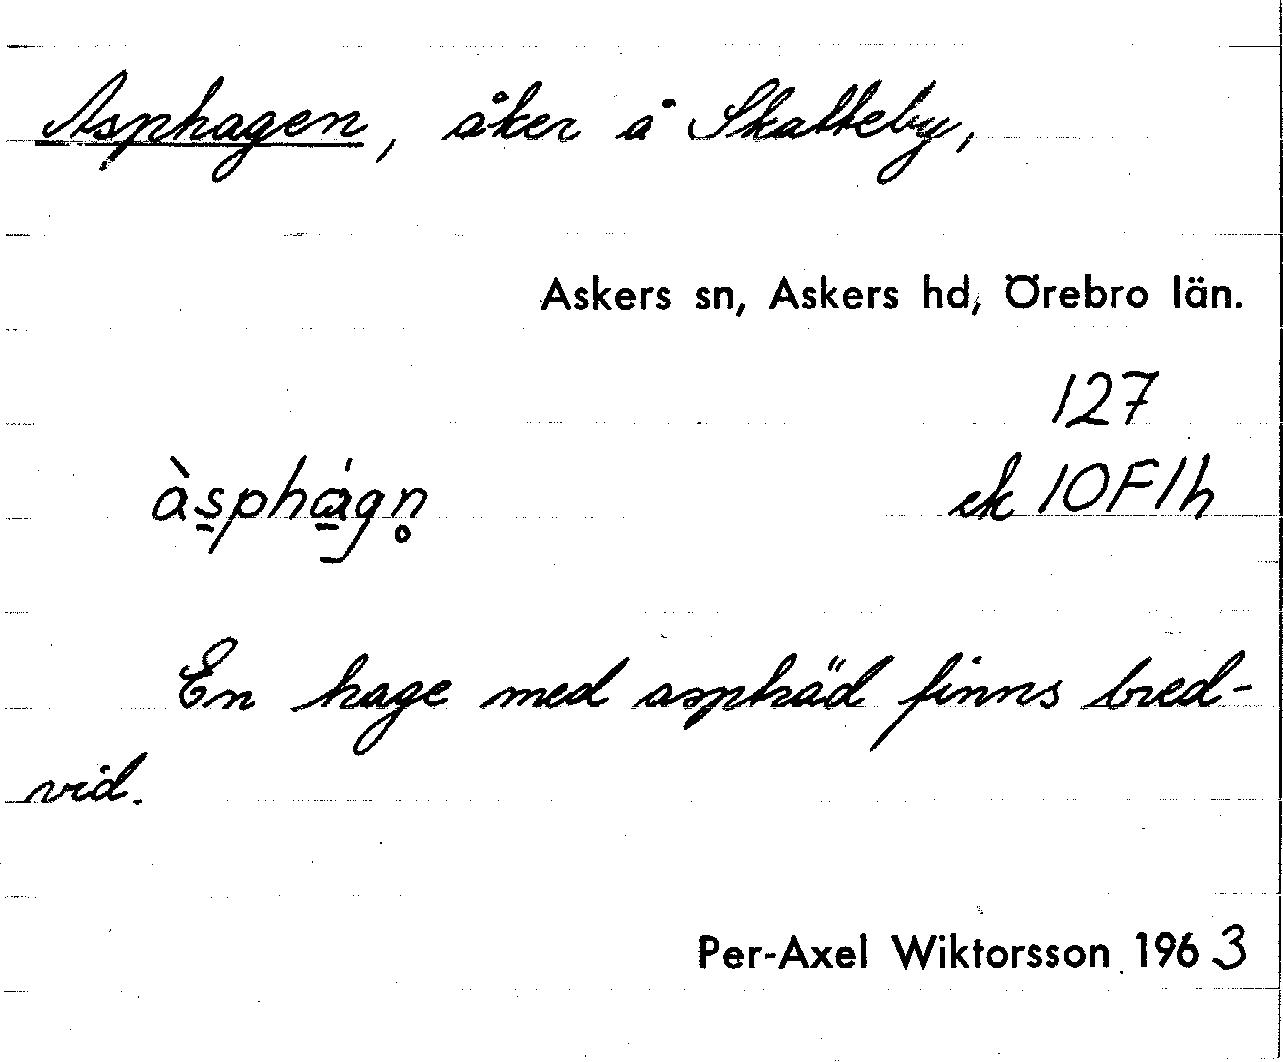 Asphagen, åker å Skatteby,
Askers sn, Askers hd, Örebro län.
127
às̠phá̠gn̥
ek 10F1h
En hage med asphäd finns bred-
vid.
Per-Axel Wiktorsson 1963